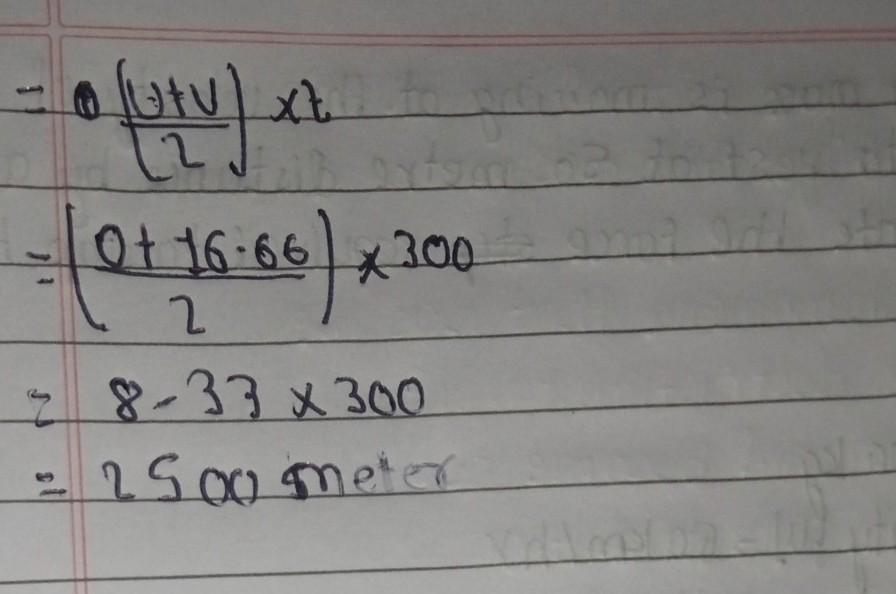 = (U+V/2) x t
= (0+16.66/2) x 300
= 8.33 x 300
= 2500 meter